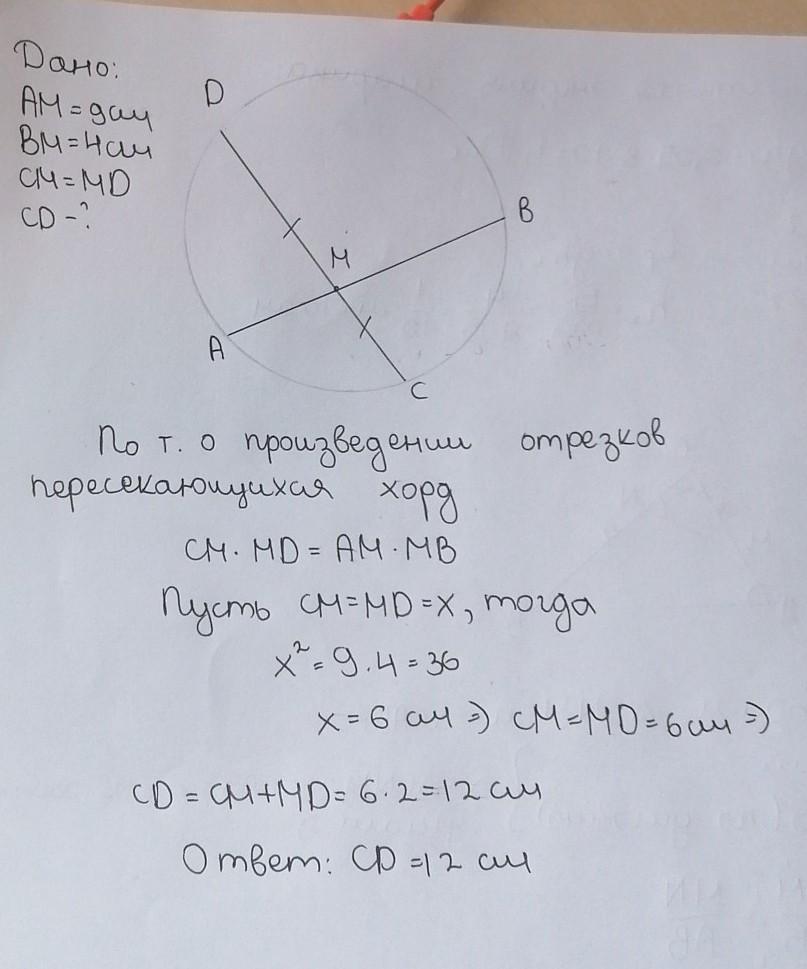 Дано:
AM = 9 см
BM = 4 см
CM = MD
CD - ?
D
B
M
A
C
По т. о произведении отрезков
пересекающихся хорд
CM · MD = AM · MB
Пусть CM = MD = x, тогда
x² = 9 · 4 = 36
x = 6 см ⇒ CM = MD = 6 см ⇒
CD = CM + MD = 6 · 2 = 12 см
Ответ: CD = 12 см